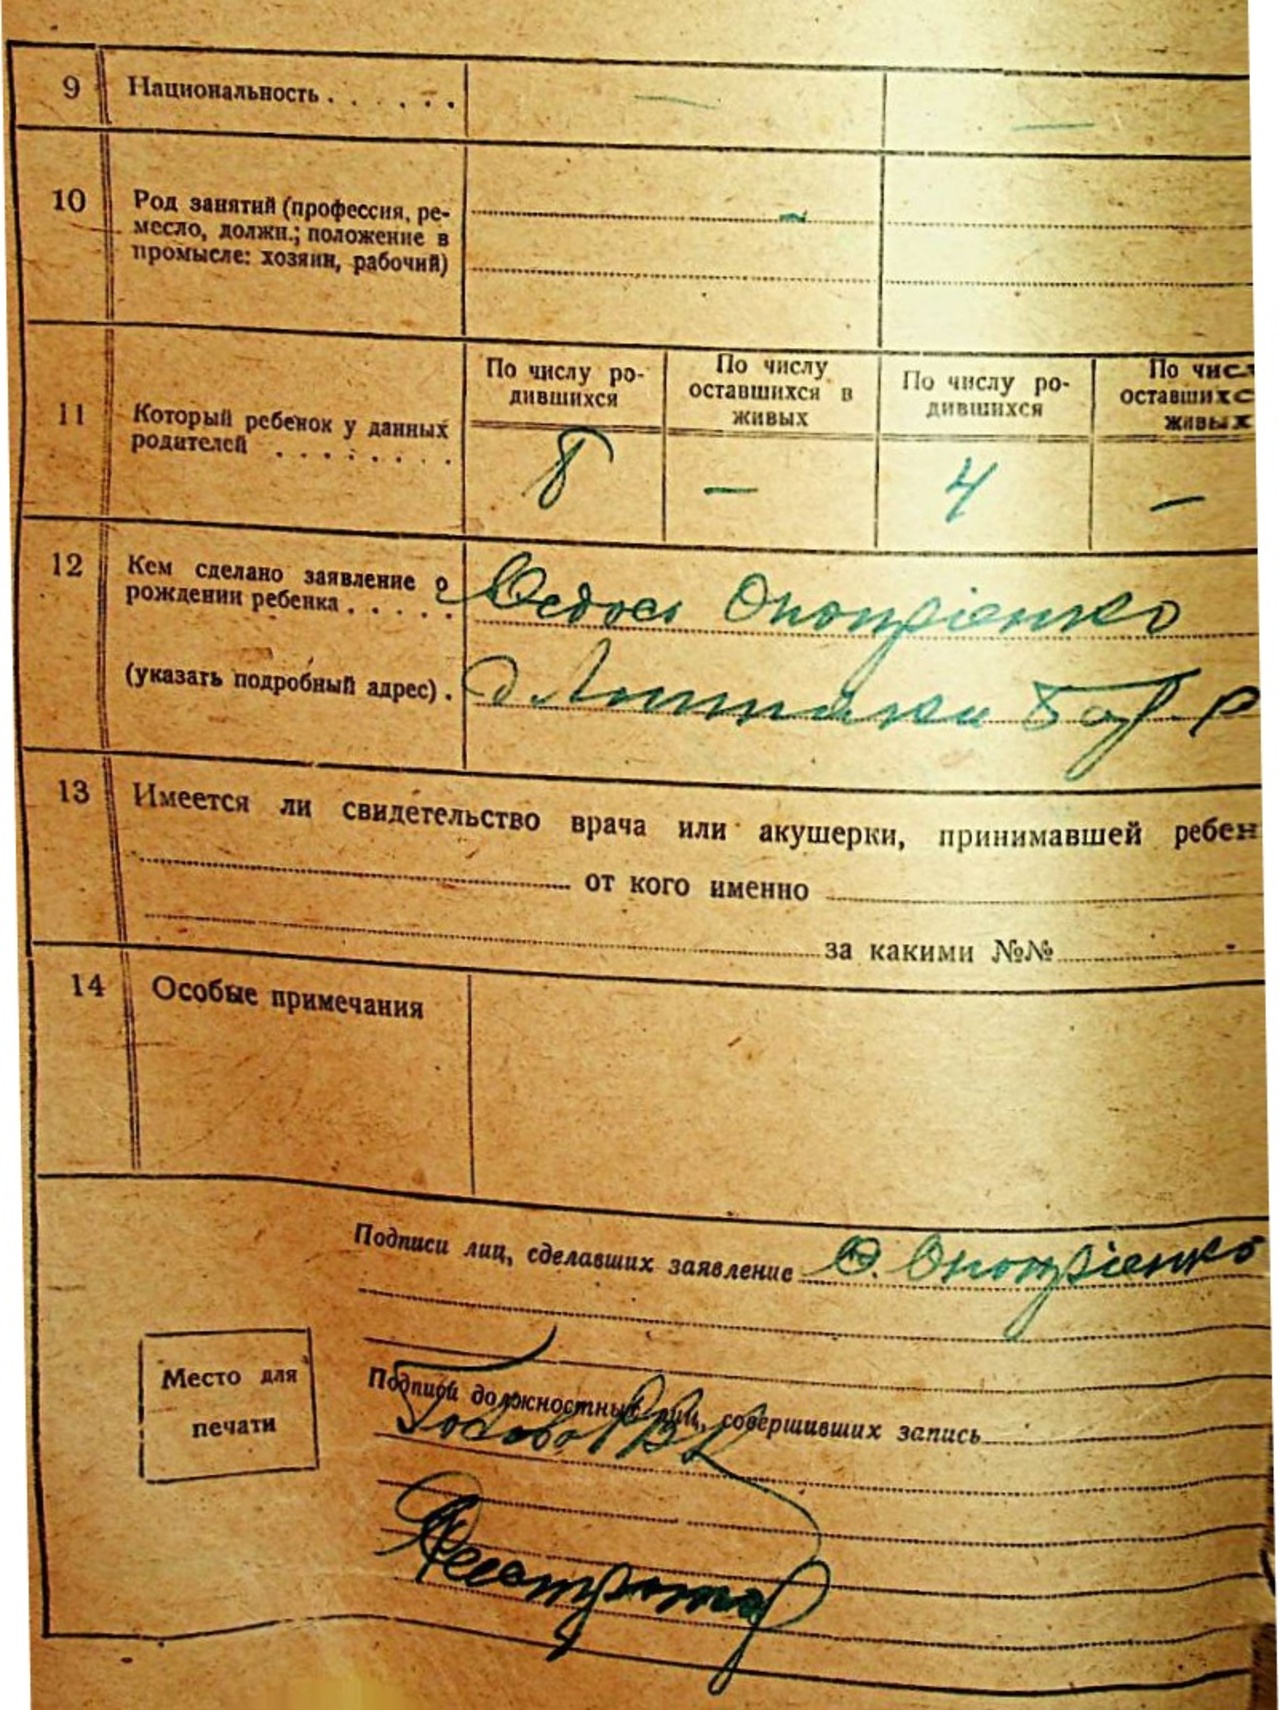 9 Национальность . . . . . . — —
10 Род занятий (профессия, ре-
месло, должн.; положение в
промысле: хозяин, рабочий)
По числу ро- По числу По числу ро- По чис
дившихся оставшихся в дившихся оставшихс
живых живых
11 Который ребенок у данных
родителей . . . . . . . .
8 — 4 —
12 Кем сделано заявление о
рождении ребенка . . . . . Федось Оноприенко
(указать подробный адрес) .
13 Имеется ли свидетельство врача или акушерки, принимавшей ребен
от кого именно
за какими №№
14 Особые примечания
Подписи лиц, сделавших заявление Ф. Оноприенко
Место для
печати
Подписи должностных лиц, совершивших запись
Голова